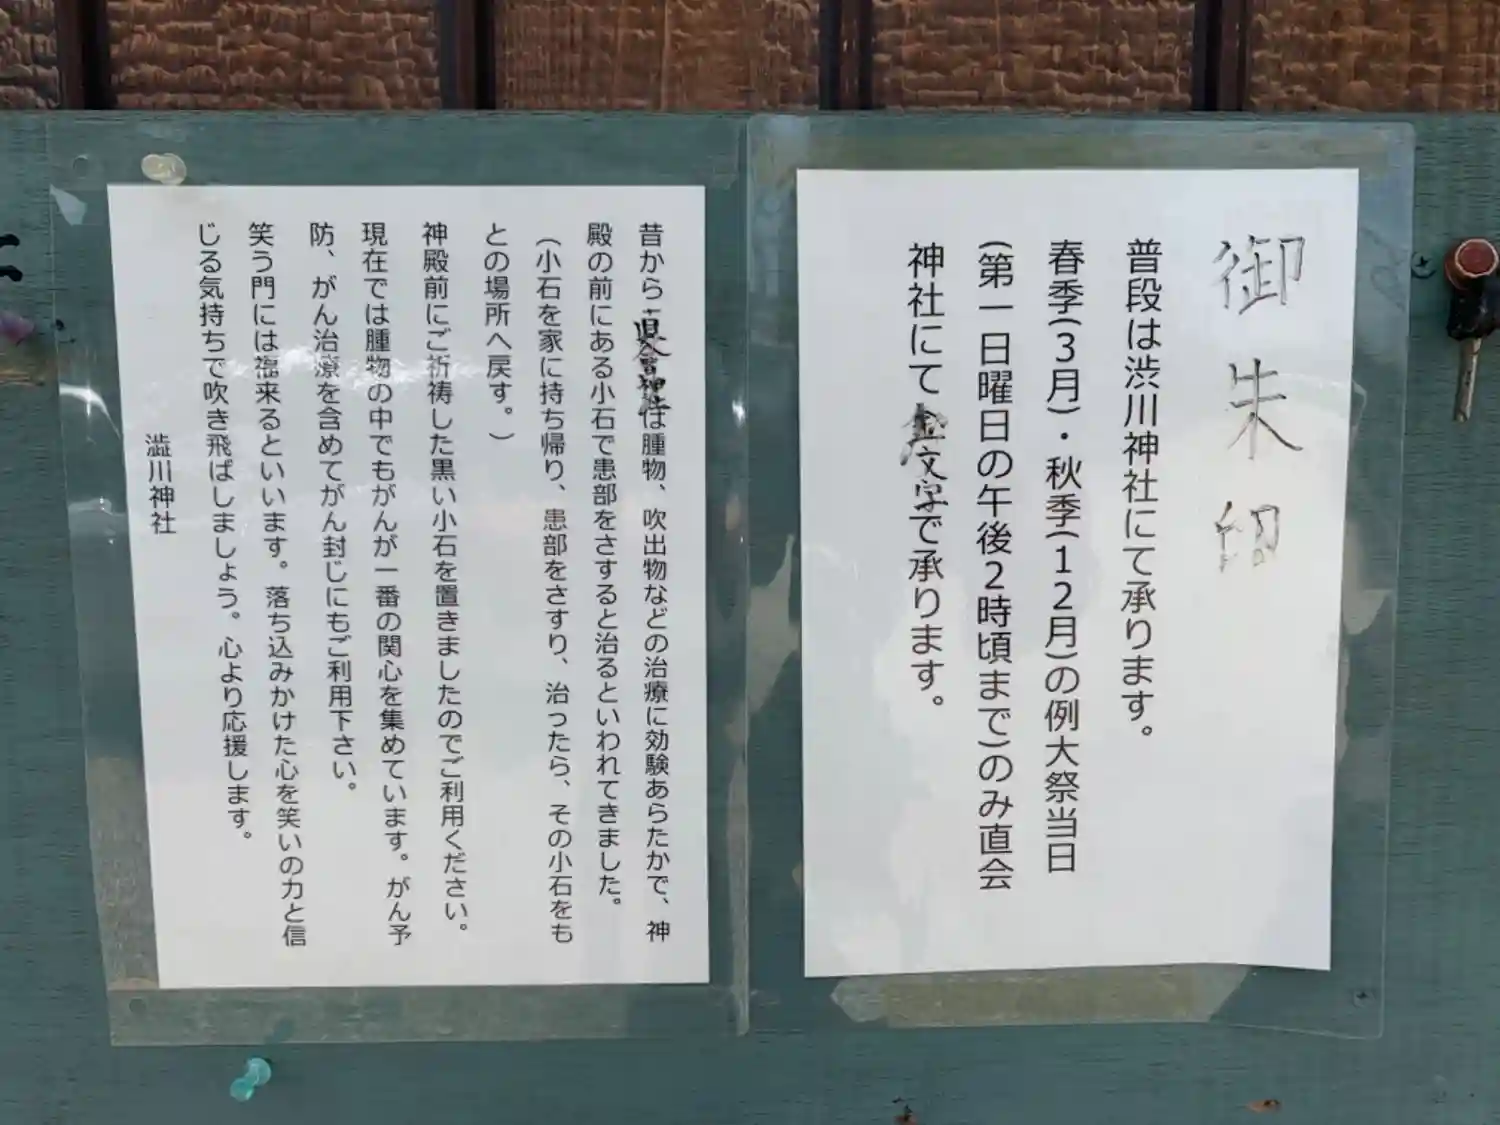 御朱印
普段は渋川神社にて承ります。
春季(3月)・秋季(12月)の例大祭当日
(第一日曜日の午後2時頃まで)のみ直会
神社にて金文字で承ります。
昔から直会神社は腫物、吹出物などの治療に効験あらたかで、神
殿の前にある小石で患部をさすると治るといわれてきました。
(小石を家に持ち帰り、患部をさすり、治ったら、その小石をも
との場所へ戻す。)
神殿前にご祈祷した黒い小石を置きましたのでご利用ください。
現在では腫物の中でもがんが一番の関心を集めています。がん予
防、がん治療を含めてがん封じにもご利用下さい。
笑う門には福来るといいます。落ち込みかけた心を笑いの力と信
じる気持ちで吹き飛ばしましょう。心より応援します。
澁川神社